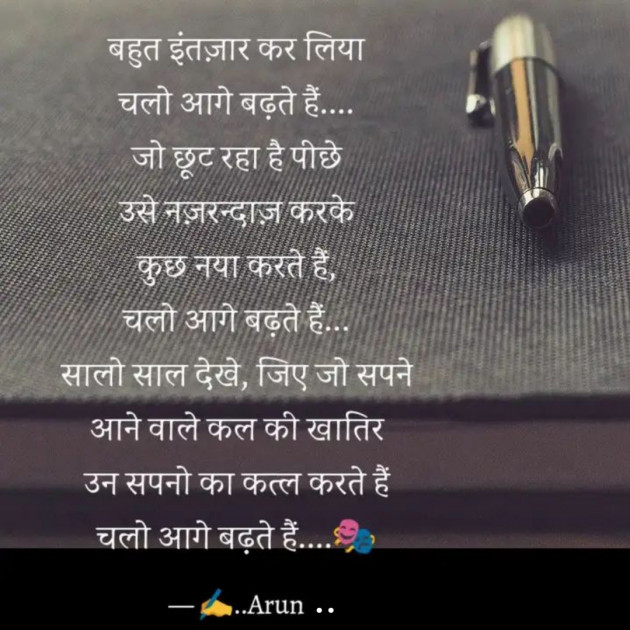 बहुत इंतज़ार कर लिया
चलो आगे बढ़ते हैं....
जो छूट रहा है पीछे
उसे नज़रन्दाज़ करके
कुछ नया करते हैं,
चलो आगे बढ़ते हैं...
सालो साल देखे, जिए जो सपने
आने वाले कल की खातिर
उन सपनो का कत्ल करते हैं
चलो आगे बढ़ते हैं....🎭
— ✍️..Arun ..